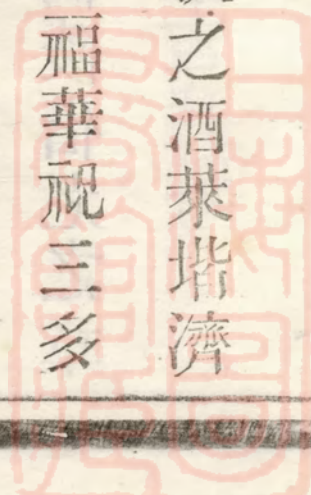 之酒萊堦濟
福華祝三多